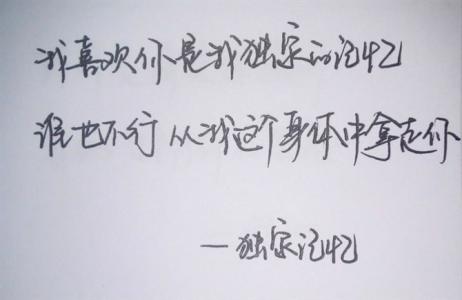 我喜欢你是我独家的记忆
谁也不行从我这个身体中拿走你
—独家记忆